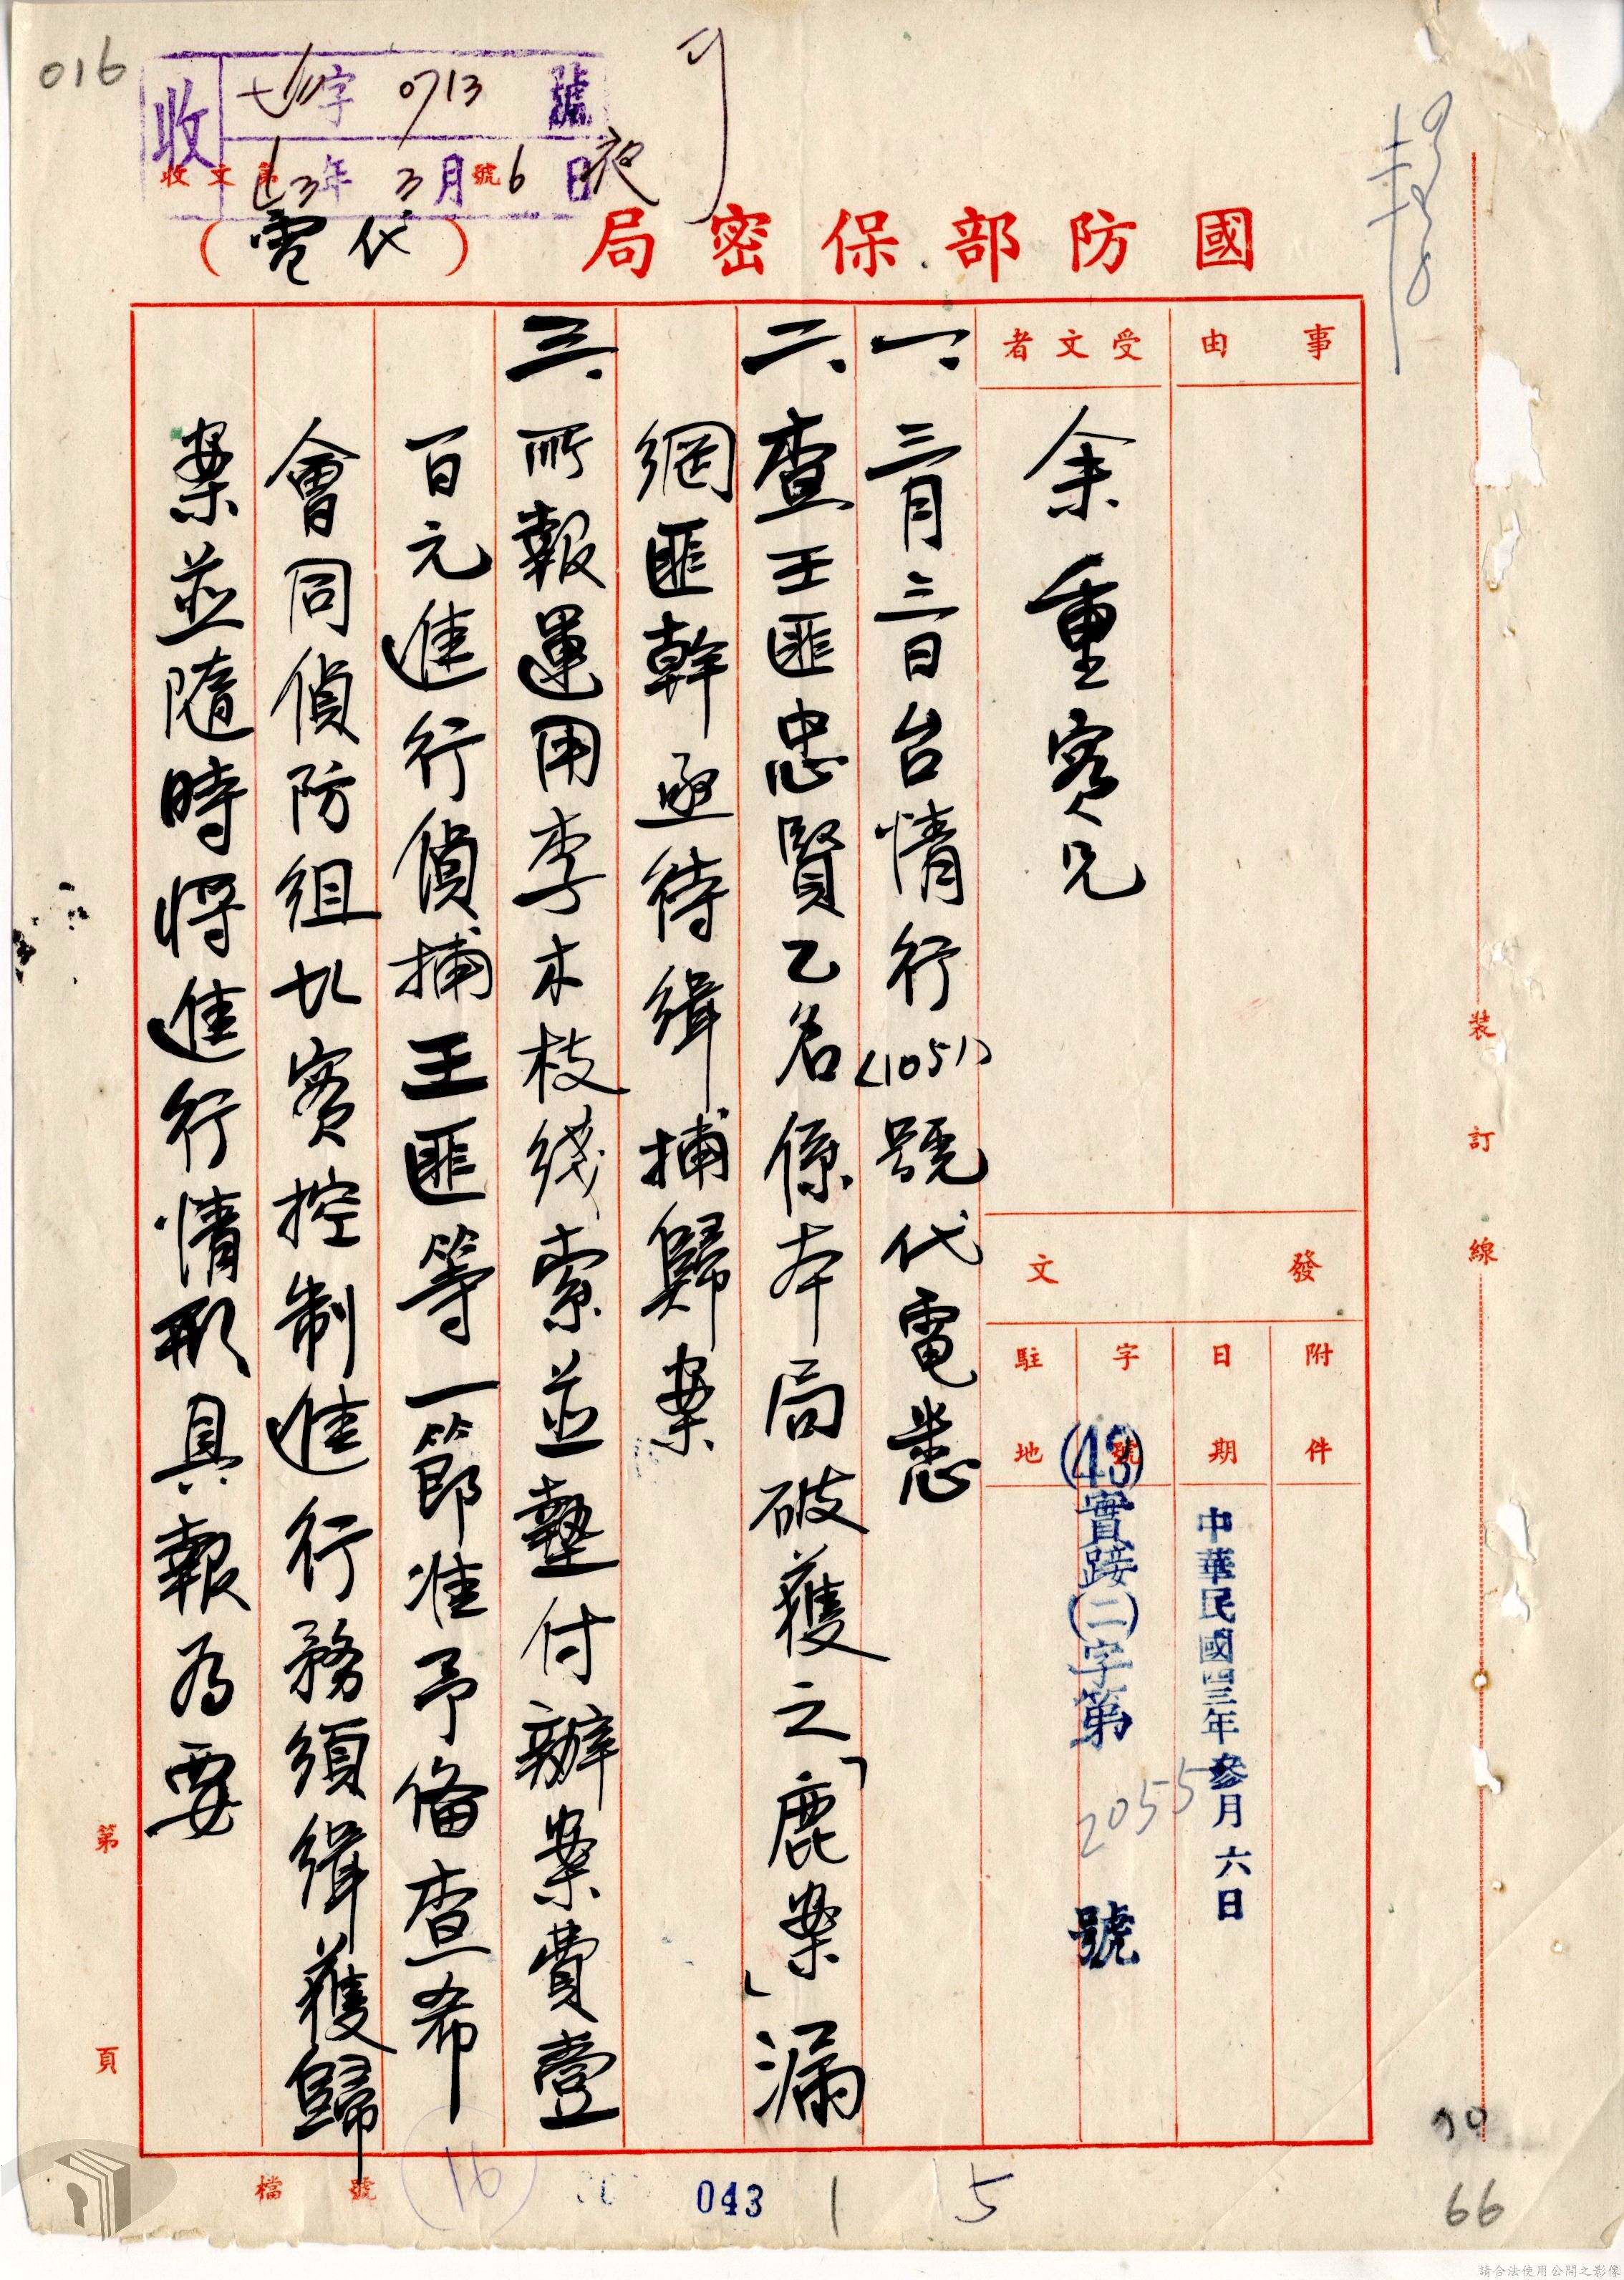 016
收
字 0713 號
43年 3月 6日 夜
收文第 號
國防部保密局（代電）
事由
受文者
余重賓兄
發文
附件
日期
中華民國四三年參月六日
字號
(43)實踐(二)字第 2055 號
駐地
一、三月三日台情行(1051)號代電悉
二、查王匪忠賢乙名係本局破獲之「鹿案」漏
網匪幹亟待緝捕歸案
三、所報運用李木枝线索並墊付辦案費壹
百元進行偵捕王匪等一節准予備查希
會同偵防組切實控制進行務須緝獲歸
案並隨時將進行情形具報為要
裝訂線
第 頁
檔號
16
043
15
66
請合法使用公開之影像